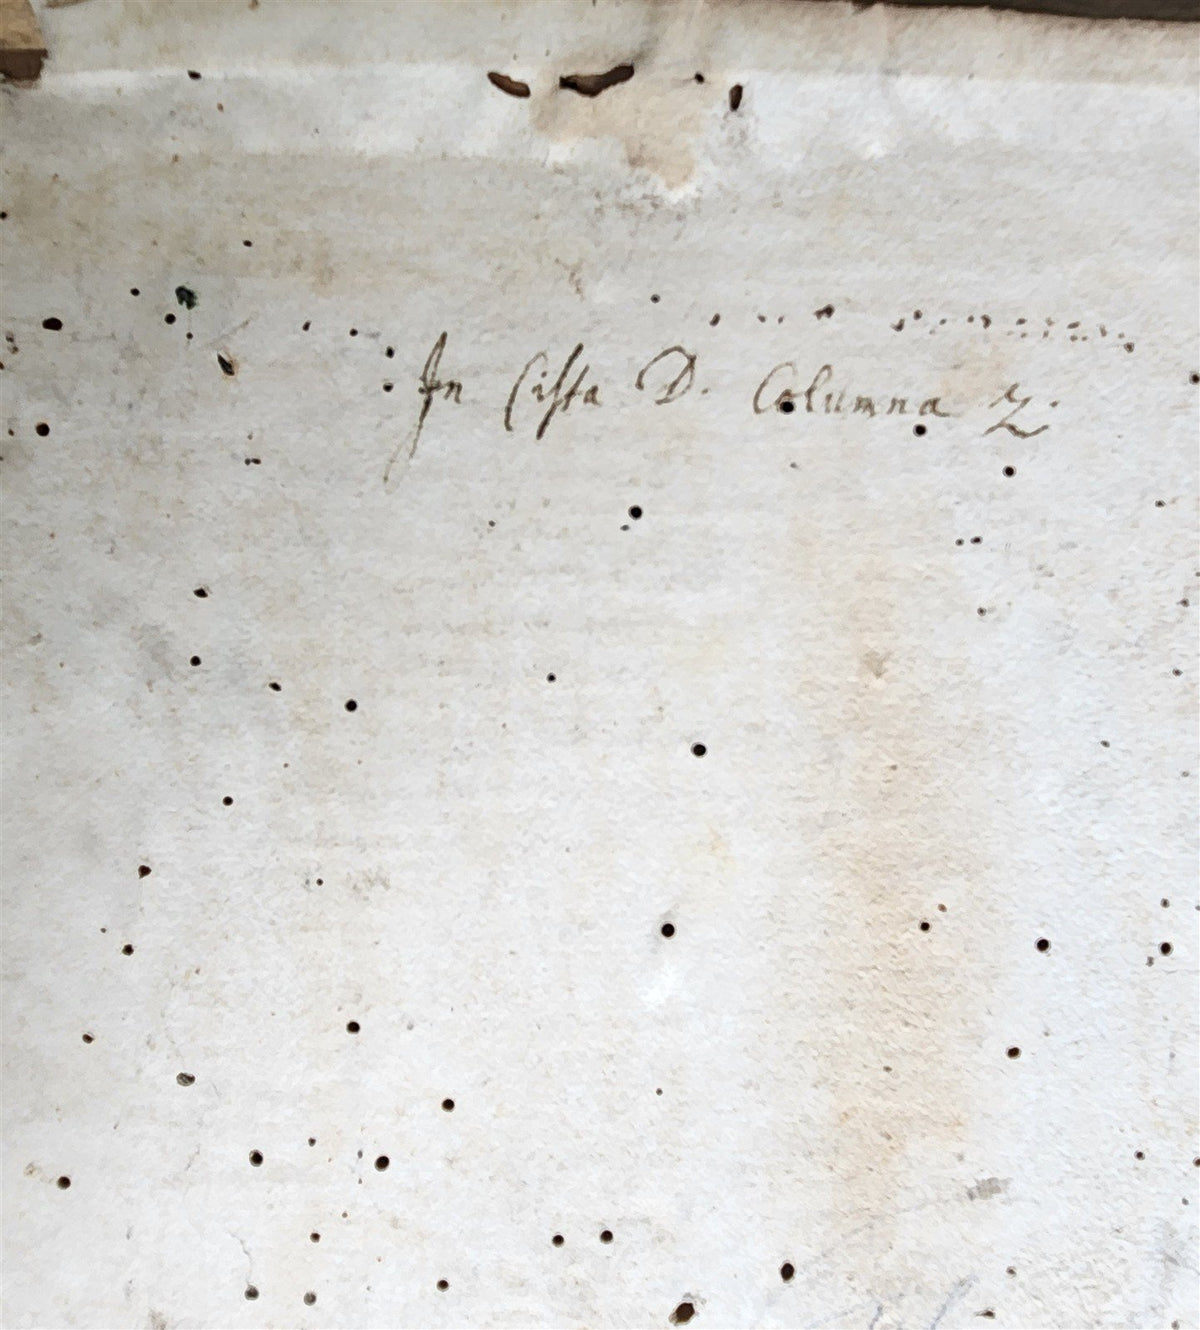 In Cista D. Columna 2.